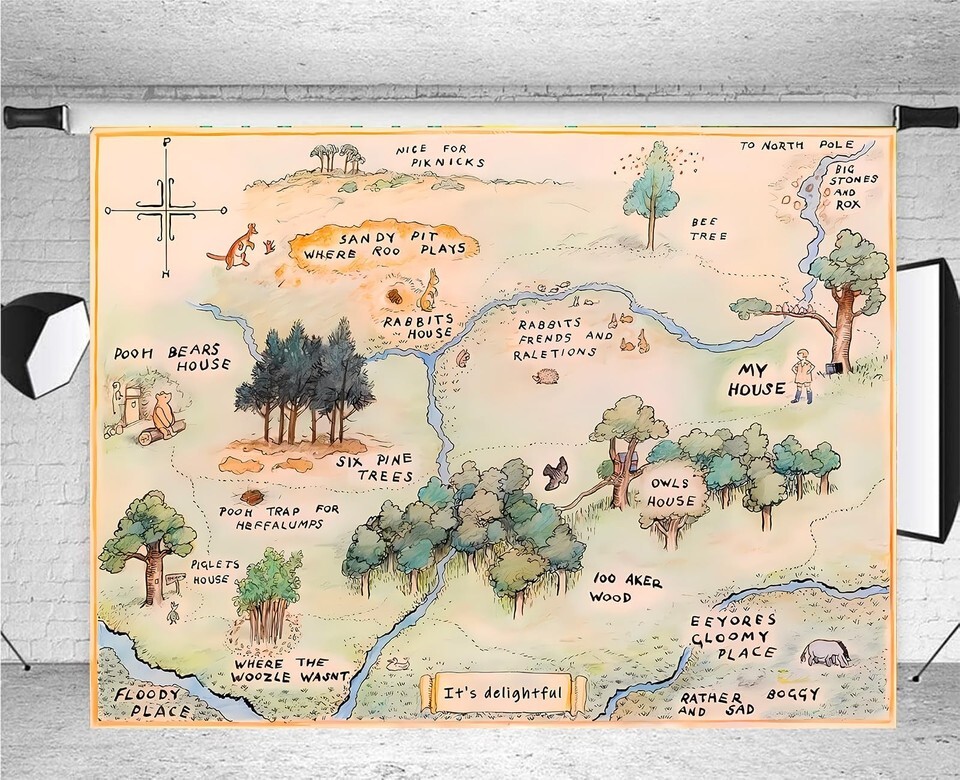 P
NICE FOR
PIKNICKS
TO NORTH POLE
BIG
STONES
AND
ROX
BEE
TREE
SANDY PIT
WHERE ROO PLAYS
H
RABBITS
HOUSE
RABBITS
FRENDS AND
RALETIONS
POOH BEARS
HOUSE
MY
HOUSE
SIX PINE
TREES
OWLS
HOUSE
POOH TRAP FOR
HEFFALUMPS
PIGLETS
HOUSE
100 AKER
WOOD
EEYORES
GLOOMY
PLACE
WHERE THE
WOOZLE WASNT
FLOODY
PLACE
It's delightful
RATHER BOGGY
AND SAD